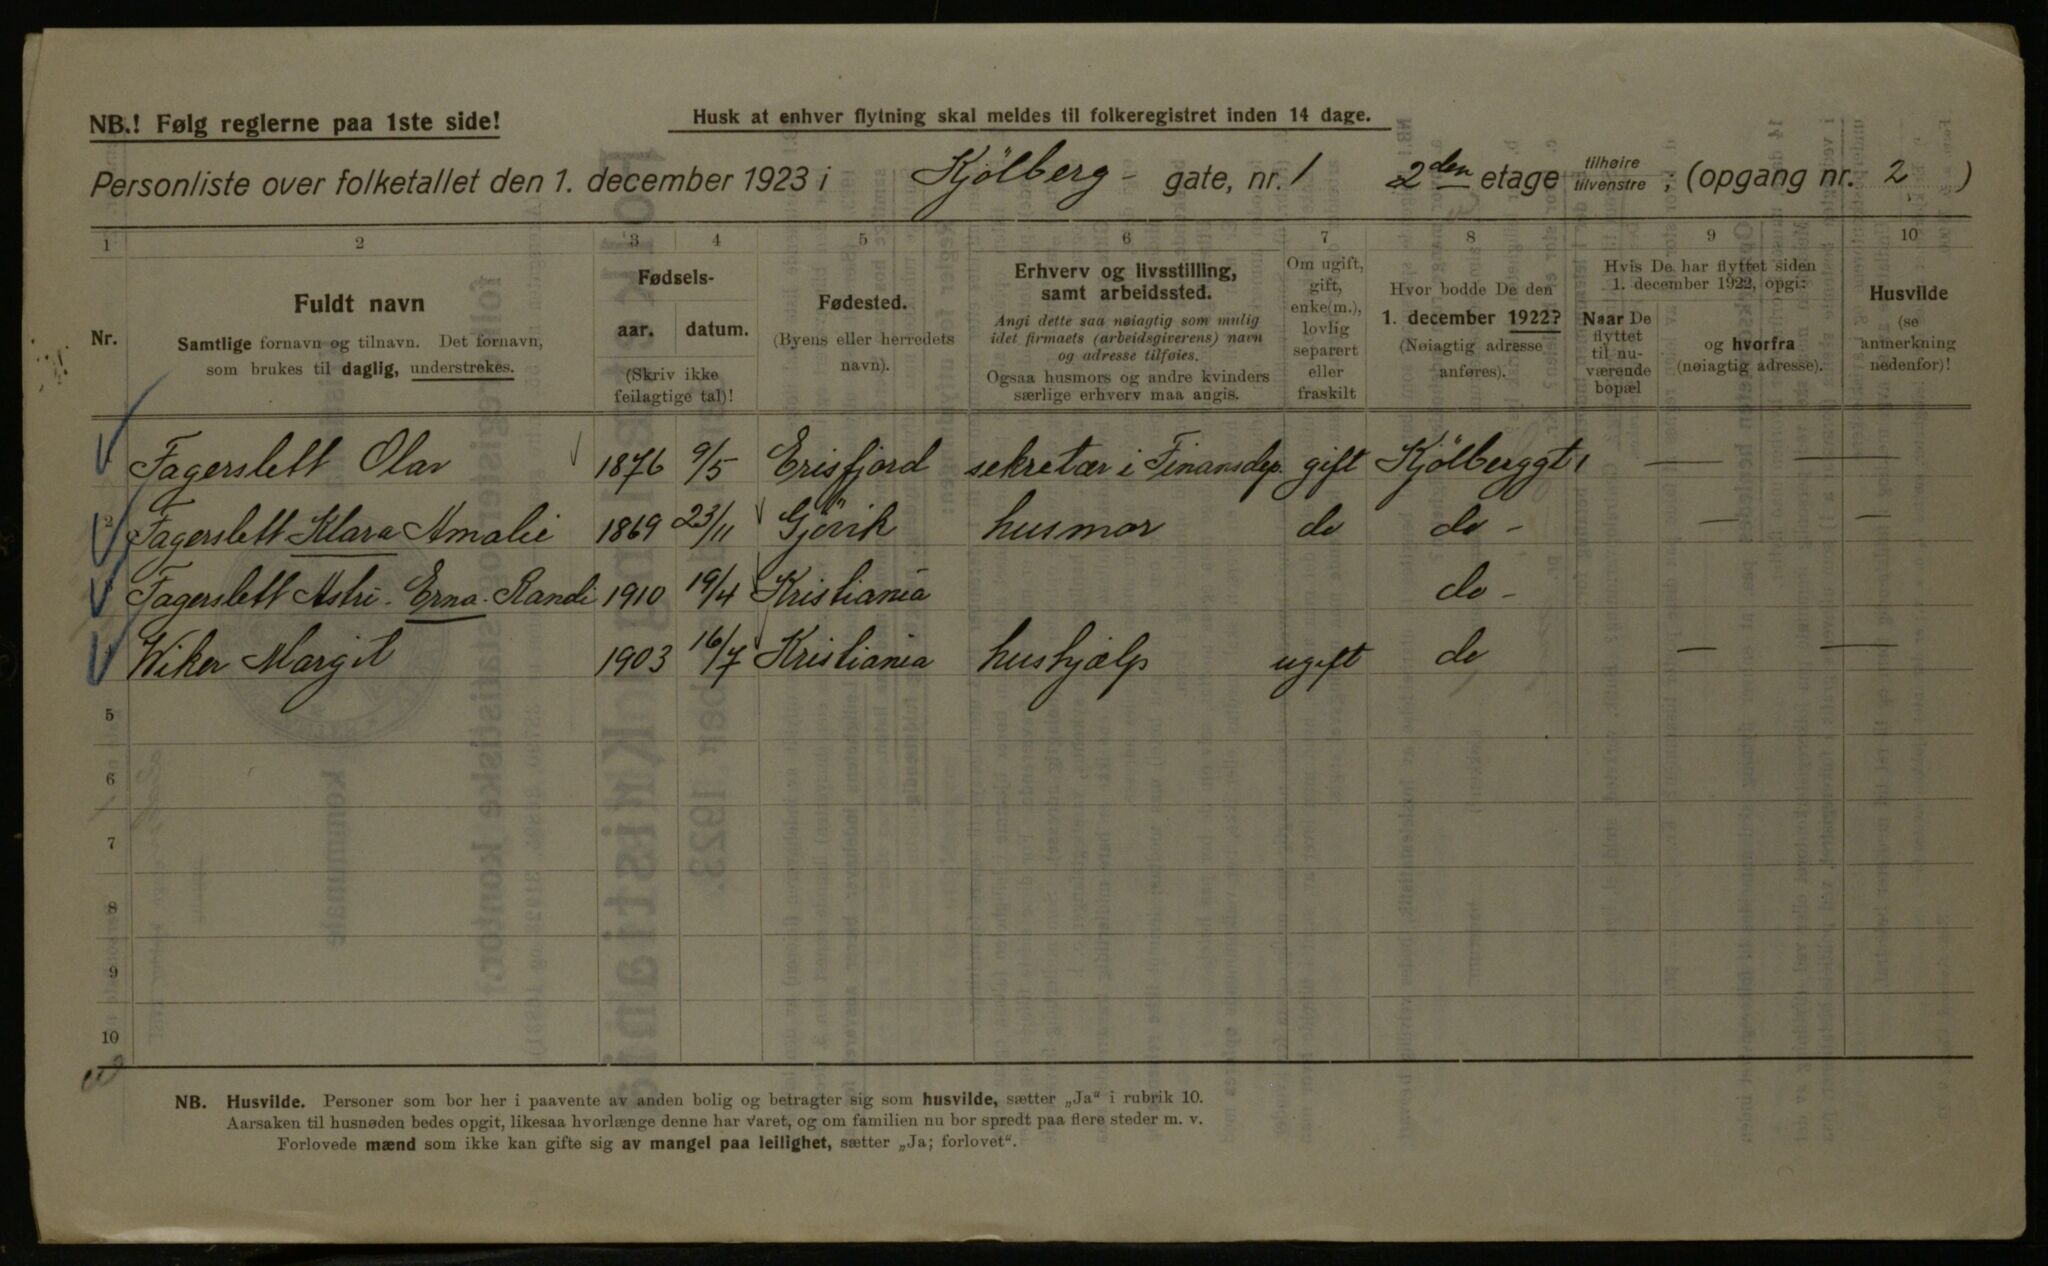 NB.! Følg reglerne paa 1ste side!
Husk at enhver flytning skal meldes til folkeregistret inden 14 dage.
Personliste over folketallet den 1. december 1923 i Kjölberg- gate, nr. 1 2den etage tilhøire tilvenstre ; (opgang nr. 2 )
1 2 3 4 5 6 7 8 9 10
Nr.
Fuldt navn
Samtlige fornavn og tilnavn. Det fornavn,
som brukes til daglig, understrekes.
Fødsels-
aar. datum.
(Skriv ikke
feilagtige tal)!
Fødested.
(Byens eller herredets
navn).
Erhverv og livsstilling,
samt arbeidssted.
Angi dette saa nøiagtig som mulig
idet firmaets (arbeidsgiverens) navn
og adresse tilføies.
Ogsaa husmors og andre kvinders
særlige erhverv maa angis.
Om ugift,
gift,
enke(m.),
lovlig
separert
eller
fraskilt
Hvor bodde De den
1. december 1922?
(Nøiagtig adresse
anføres).
Hvis De har flyttet siden
1. december 1922, opgi:
Naar De
flyttet
til nu-
værende
bopæl
og hvorfra
(nøiagtig adresse).
Husvilde
(se
anmerkning
nedenfor)!
Fagerslett Olav 1876 9/5 Erisfjord sekretær i Finansdep. gift Kjölberggt 1 — —
2 Fagerslett Klara Amalie 1869 23/11 Gjövik husmor do do - — —
Fagerslett Astri - Erna - Randi 1910 19/4 Kristiania do -
Wiker Margit 1903 16/7 Kristiania hushjælp ugift do — —
5
6
7
8
9
10
NB. Husvilde. Personer som bor her i paavente av anden bolig og betragter sig som husvilde, sætter „Ja“ i rubrik 10.
Aarsaken til husnøden bedes opgit, likesaa hvorlænge denne har varet, og om familien nu bor spredt paa flere steder m. v.
Forlovede mænd som ikke kan gifte sig av mangel paa leilighet, sætter „Ja; forlovet“.